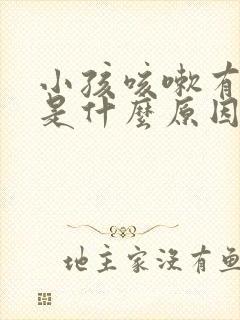 小孩咳嗽有
是什麼原因
地主家沒有魚